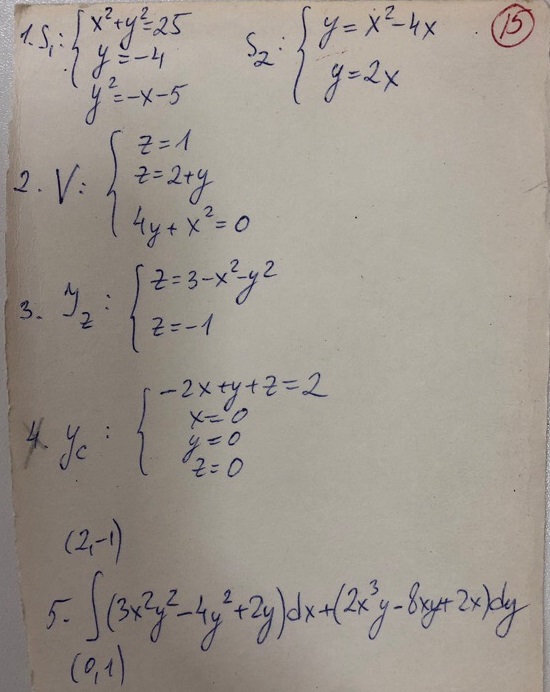 1. S₁: { x²+y²=25
y=-4
y²=-x-5
S₂: { y=x²-4x
y=2x
15
2. V: { z=1
z=2+y
4y+x²=0
3. Yz: { z=3-x²-y²
z=-1
4. yc: { -2x+y+z=2
x=0
y=0
z=0
(2,-1)
5. ∫(3x²y²-4y²+2y)dx+(2x³y-8xy+2x)dy
(0,1)